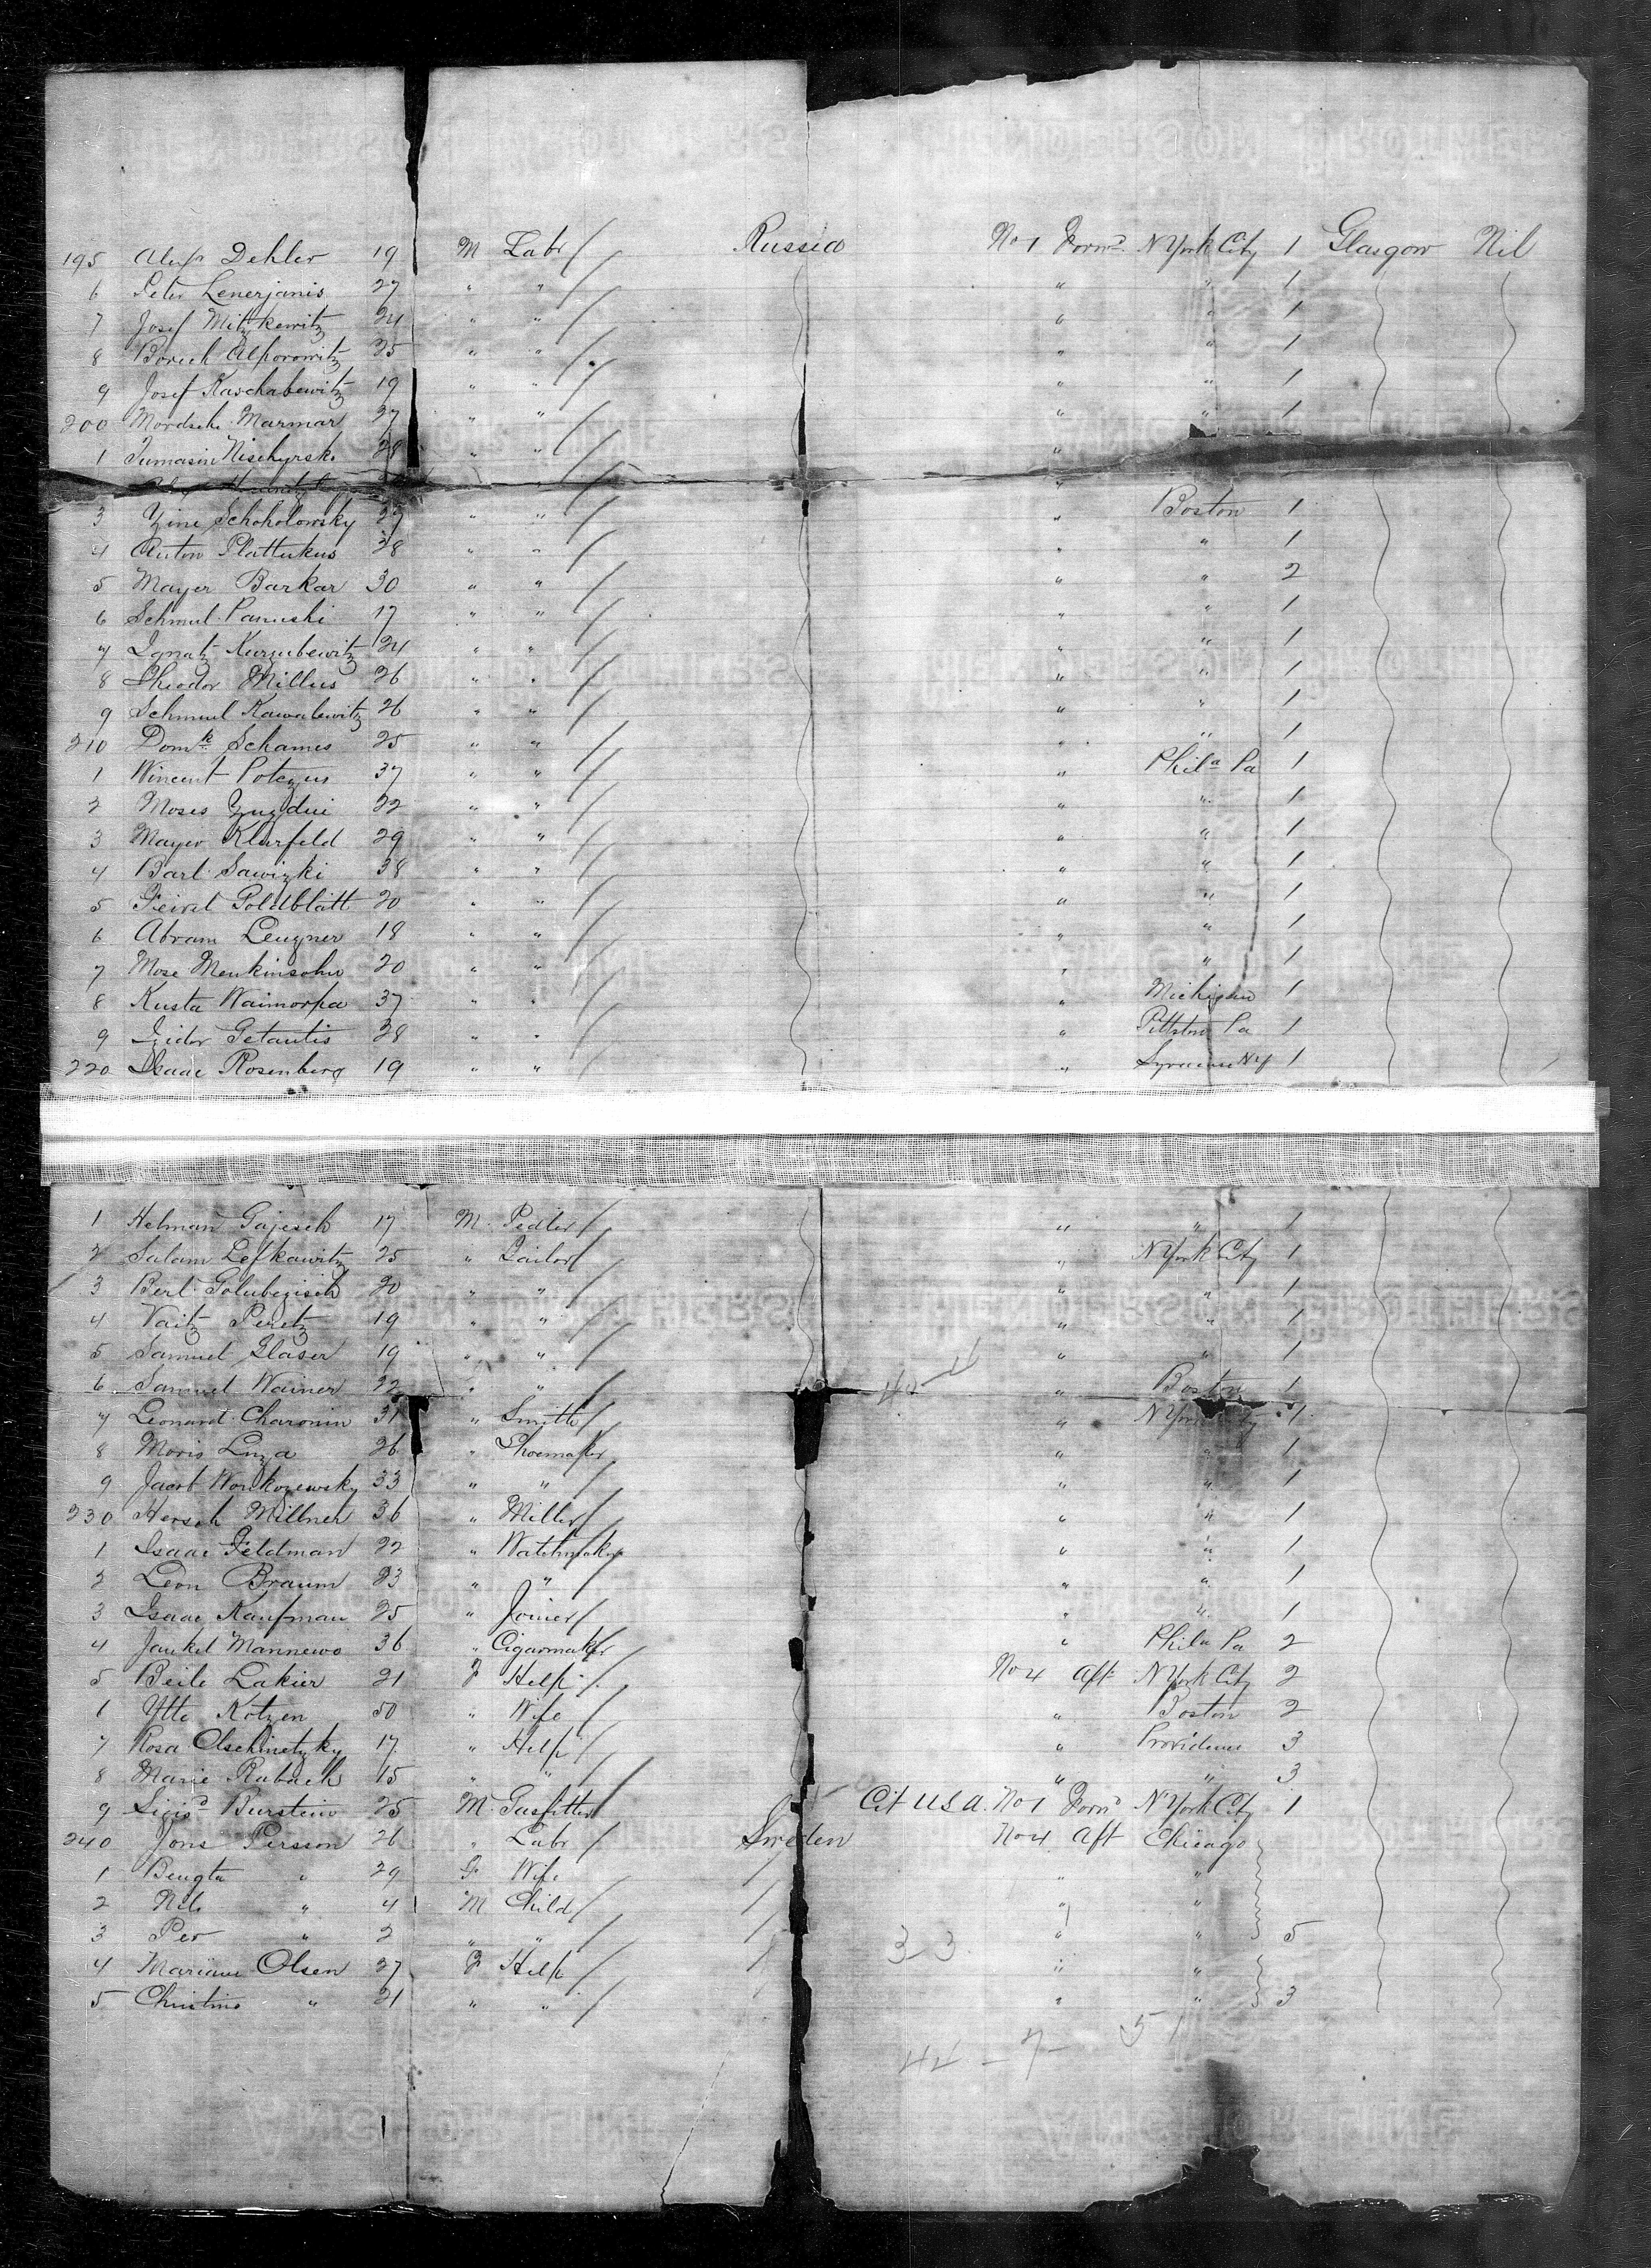 195 Alexr Dehler 19 M Labr Russia No 1 Forwd N York City 1 Glasgow Nil
6 Peter Lenerjanis 27 " " " " 1
7 Josef Mitzkewitz 24 " " " " 1
8 Boruch Alporowitz 25 " " " " 1
9 Josef Kaschabewitz 19 " " " " 1
200 Mordsche Marmar 27 " " " " 1
1 Tumasin 28 " " "
" "
3 Schoholowsky 27 " " " Boston 1
4 Anton Plattukus 28 " " " " 1
5 Mayer Barkar 30 " " " " 2
6 Schmul Panuski 17 " " " " 1
7 Ignatz Kurzubewitz 24 " " " " 1
8 Theodor Millus 26 " " " " 1
9 Schmul Kawalewitz 26 " " " " 1
210 Domk Schames 25 " " " " 1
1 Wincent Potezus 37 " " " Phila Pa 1
2 Moses 22 " " " " 1
3 Mayer Klarfeld 29 " " " " 1
4 Barl Sawizki 38 " " " " 1
5 Feivel Goldblatt 20 " " " " 1
6 Abram Leuzner 18 " " " " 1
7 Mose Menkinsohn 20 " " " " 1
8 Kusta Waimorpa 37 " " " Michigan 1
9 Izidor Getautis 28 " " " Pittston Pa 1
220 Isaac Rosenberg 19 " " " Syracuse NY 1
1 Helman Gajesch 17 M Pedler " " 1
2 Salam Lefkawitz 25 " Tailor " N York City 1
3 Berl Golubezisch 20 " " " " 1
4 Vaitz Peretz 19 " " " " 1
5 Samuel Glaser 19 " " " " 1
6 Samuel Wainer 22 " " " Boston 1
7 Leonard Charonin 31 " Smith " N York City 1
8 Moris Luza 26 " Shoemaker " " 1
9 Jacob Workozewsky 33 " " " " 1
230 Hersch Millner 36 " Miller " " 1
1 Isaac Feldman 22 " Watchmaker " " 1
2 Leon Braum 23 " " " " 1
3 Isaac Kaufman 25 " Joiner " " 1
4 Jankel Mannewo 36 " Cigarmaker " Phila Pa 2
5 Beile Lakier 21 F Help No 4 Aft N York City 2
1 Ytte Kotzen 50 " Wife " Boston 2
7 Rosa Olschinetzky 17 " Help " Providence 3
8 Marie Rubach 15 " " " " 3
9 Sigisd Burstein 25 M Gasfitter Cit U.S.A. No 1 Forwd N York City 1
240 Jons Persson 26 " Labr Sweden No 4 Aft Chicago
1 Bengta " 29 F Wife " "
2 Nils " 4 M Child " "
3 Per " 2 " " 3-3 " " 5
4 Mariane Olsen 27 F Help " "
5 Christine " 21 " " " " 3
44 - 7 - 51